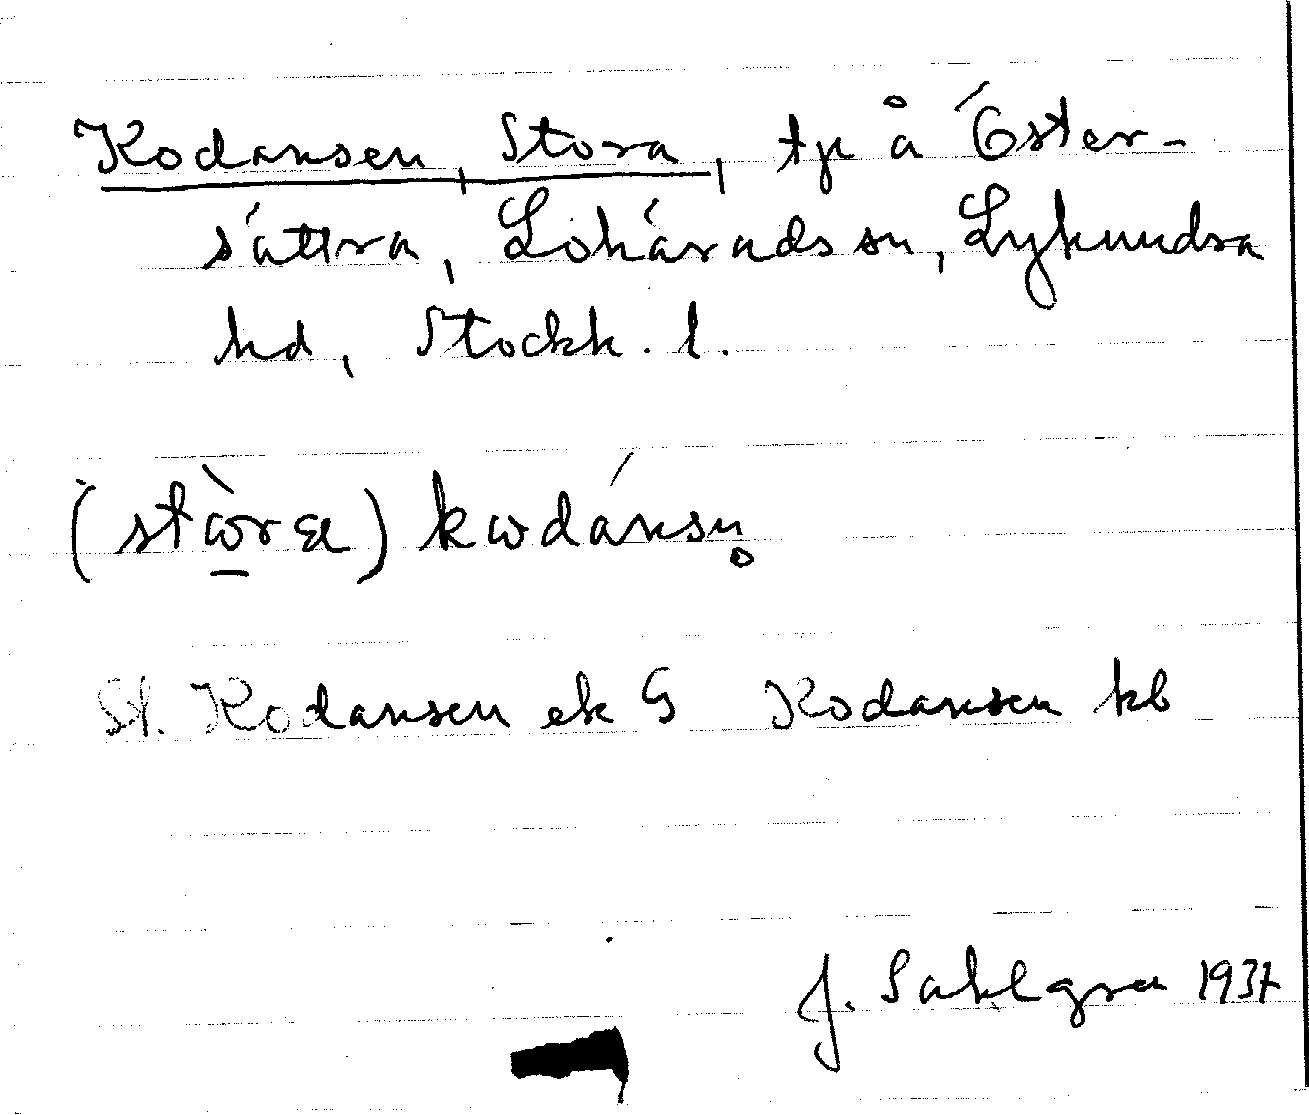 Kodansen, Stora, tp å Öster-
sättra, Lohärads sn, Lyhundra
hd, Stockh. l.
(stὼ̱ra) kωdánsn̥
St. Kodansen ek G Kodansen kb
J. Sahlgren 1937